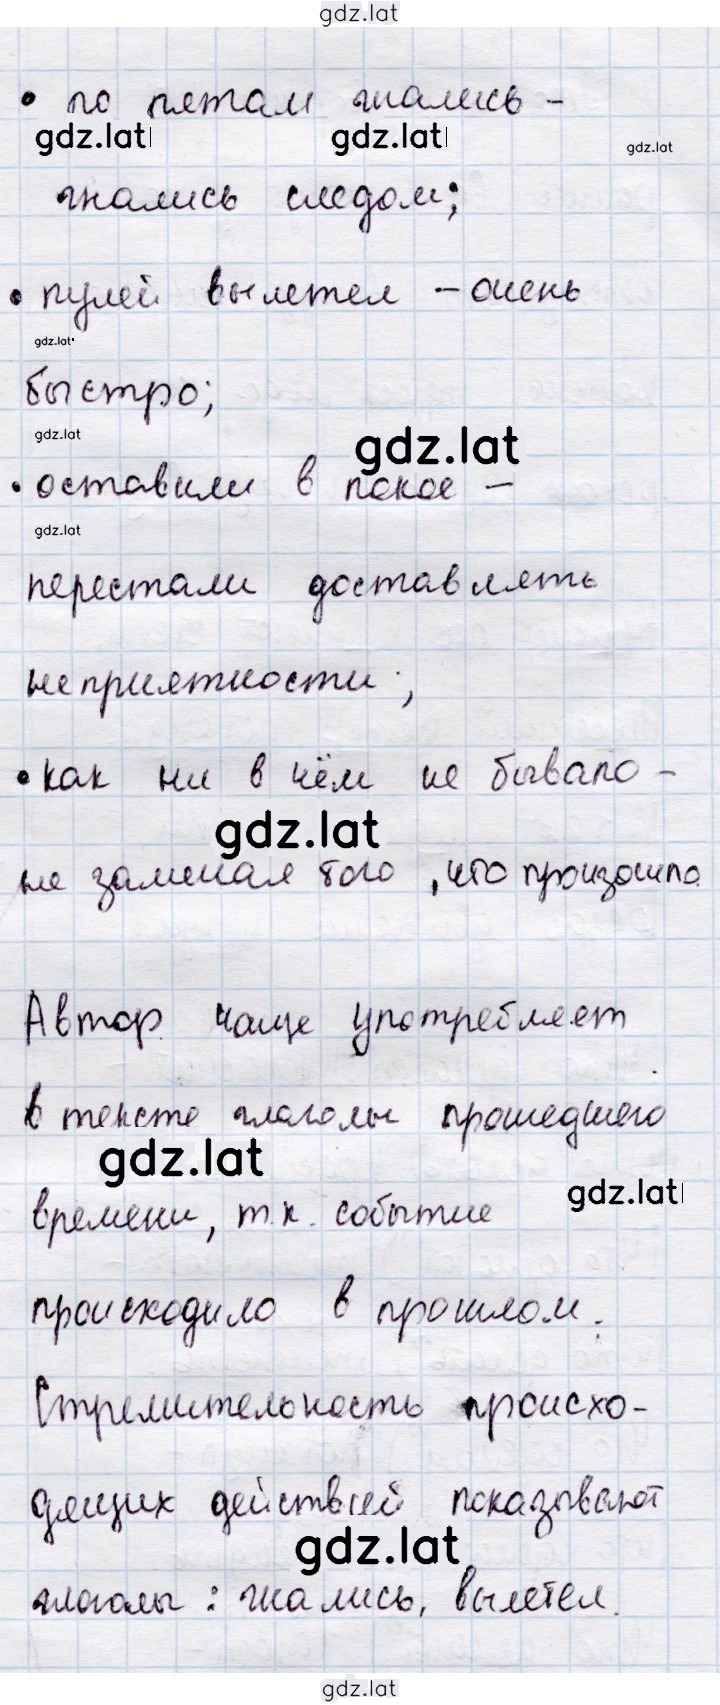 gdz.lat
• по пятам гнались –
gdz.lat gdz.lat gdz.lat
гнались следом;
• пулей вылетел – очень
gdz.lat
быстро;
gdz.lat gdz.lat
• оставили в покое –
gdz.lat
перестали доставлять
неприятности;
• как ни в чём не бывало –
gdz.lat
не замечая того, что произошло.
Автор чаще употребляет
в тексте глаголы прошедшего
gdz.lat gdz.lat
времени, т.к. событие
происходило в прошлом.
Стремительность происхо-
дящих действий показывают
gdz.lat
глаголы: гнались, вылетел.
gdz.lat